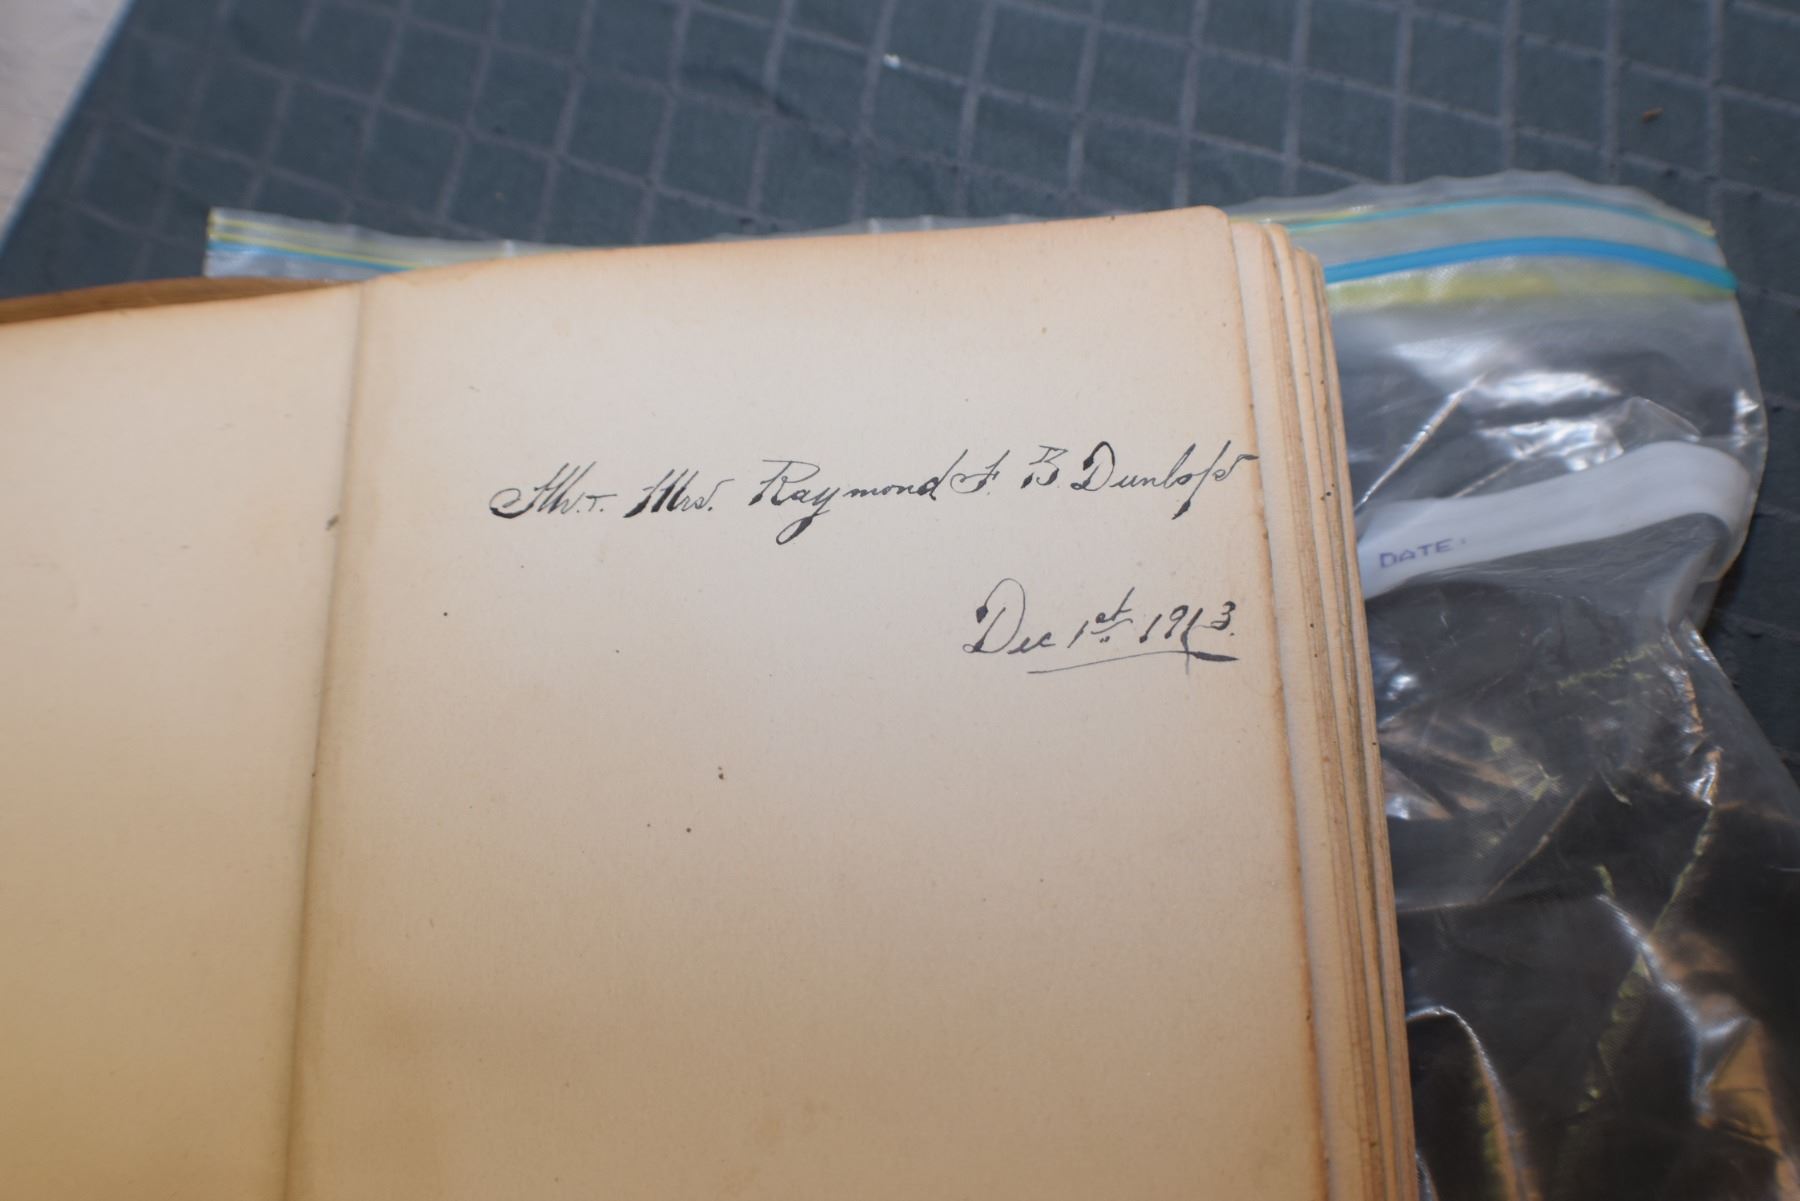 Mr. + Mrs. Raymond F. B. Dunlop
Dec 1st 1913.
DATE: